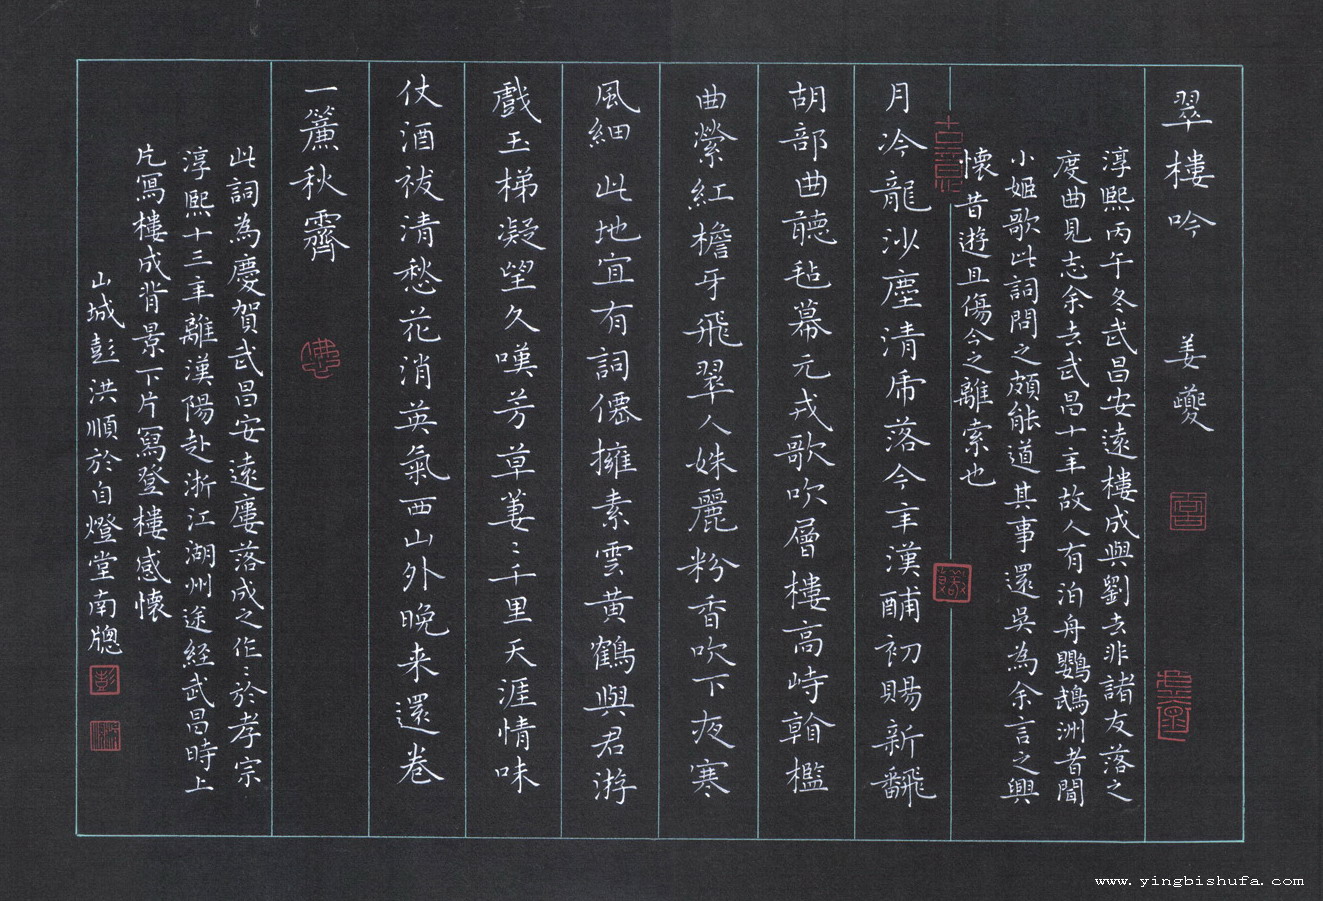 翠樓吟 姜夔
淳熙丙午冬武昌安遠樓成與劉去非諸友落之
度曲見志余去武昌十年故人有泊舟鸚鵡洲者聞
小姬歌此詞問之頗能道其事還吳為余言之興
懷昔遊且傷今之離索也
月冷龍沙塵清虎落今年漢酺初賜新翻
胡部曲聽毡幕元戎歌吹層樓高峙看檻
曲縈紅檐牙飛翠人姝麗粉香吹下夜寒
風細此地宜有詞僊擁素雲黃鶴與君游
戲玉梯凝望久嘆芳草萋〻千里天涯情味
仗酒祓清愁花消英氣西山外晚来還卷
一簾秋霽
此詞為慶賀武昌安遠廔落成之作〻於孝宗
淳熙十三年離漢陽赴浙江湖州途経武昌時上
片寫樓成背景下片寫登樓感懷
山城彭洪順於自燈堂南牕
彭
www.yingbishufa.com